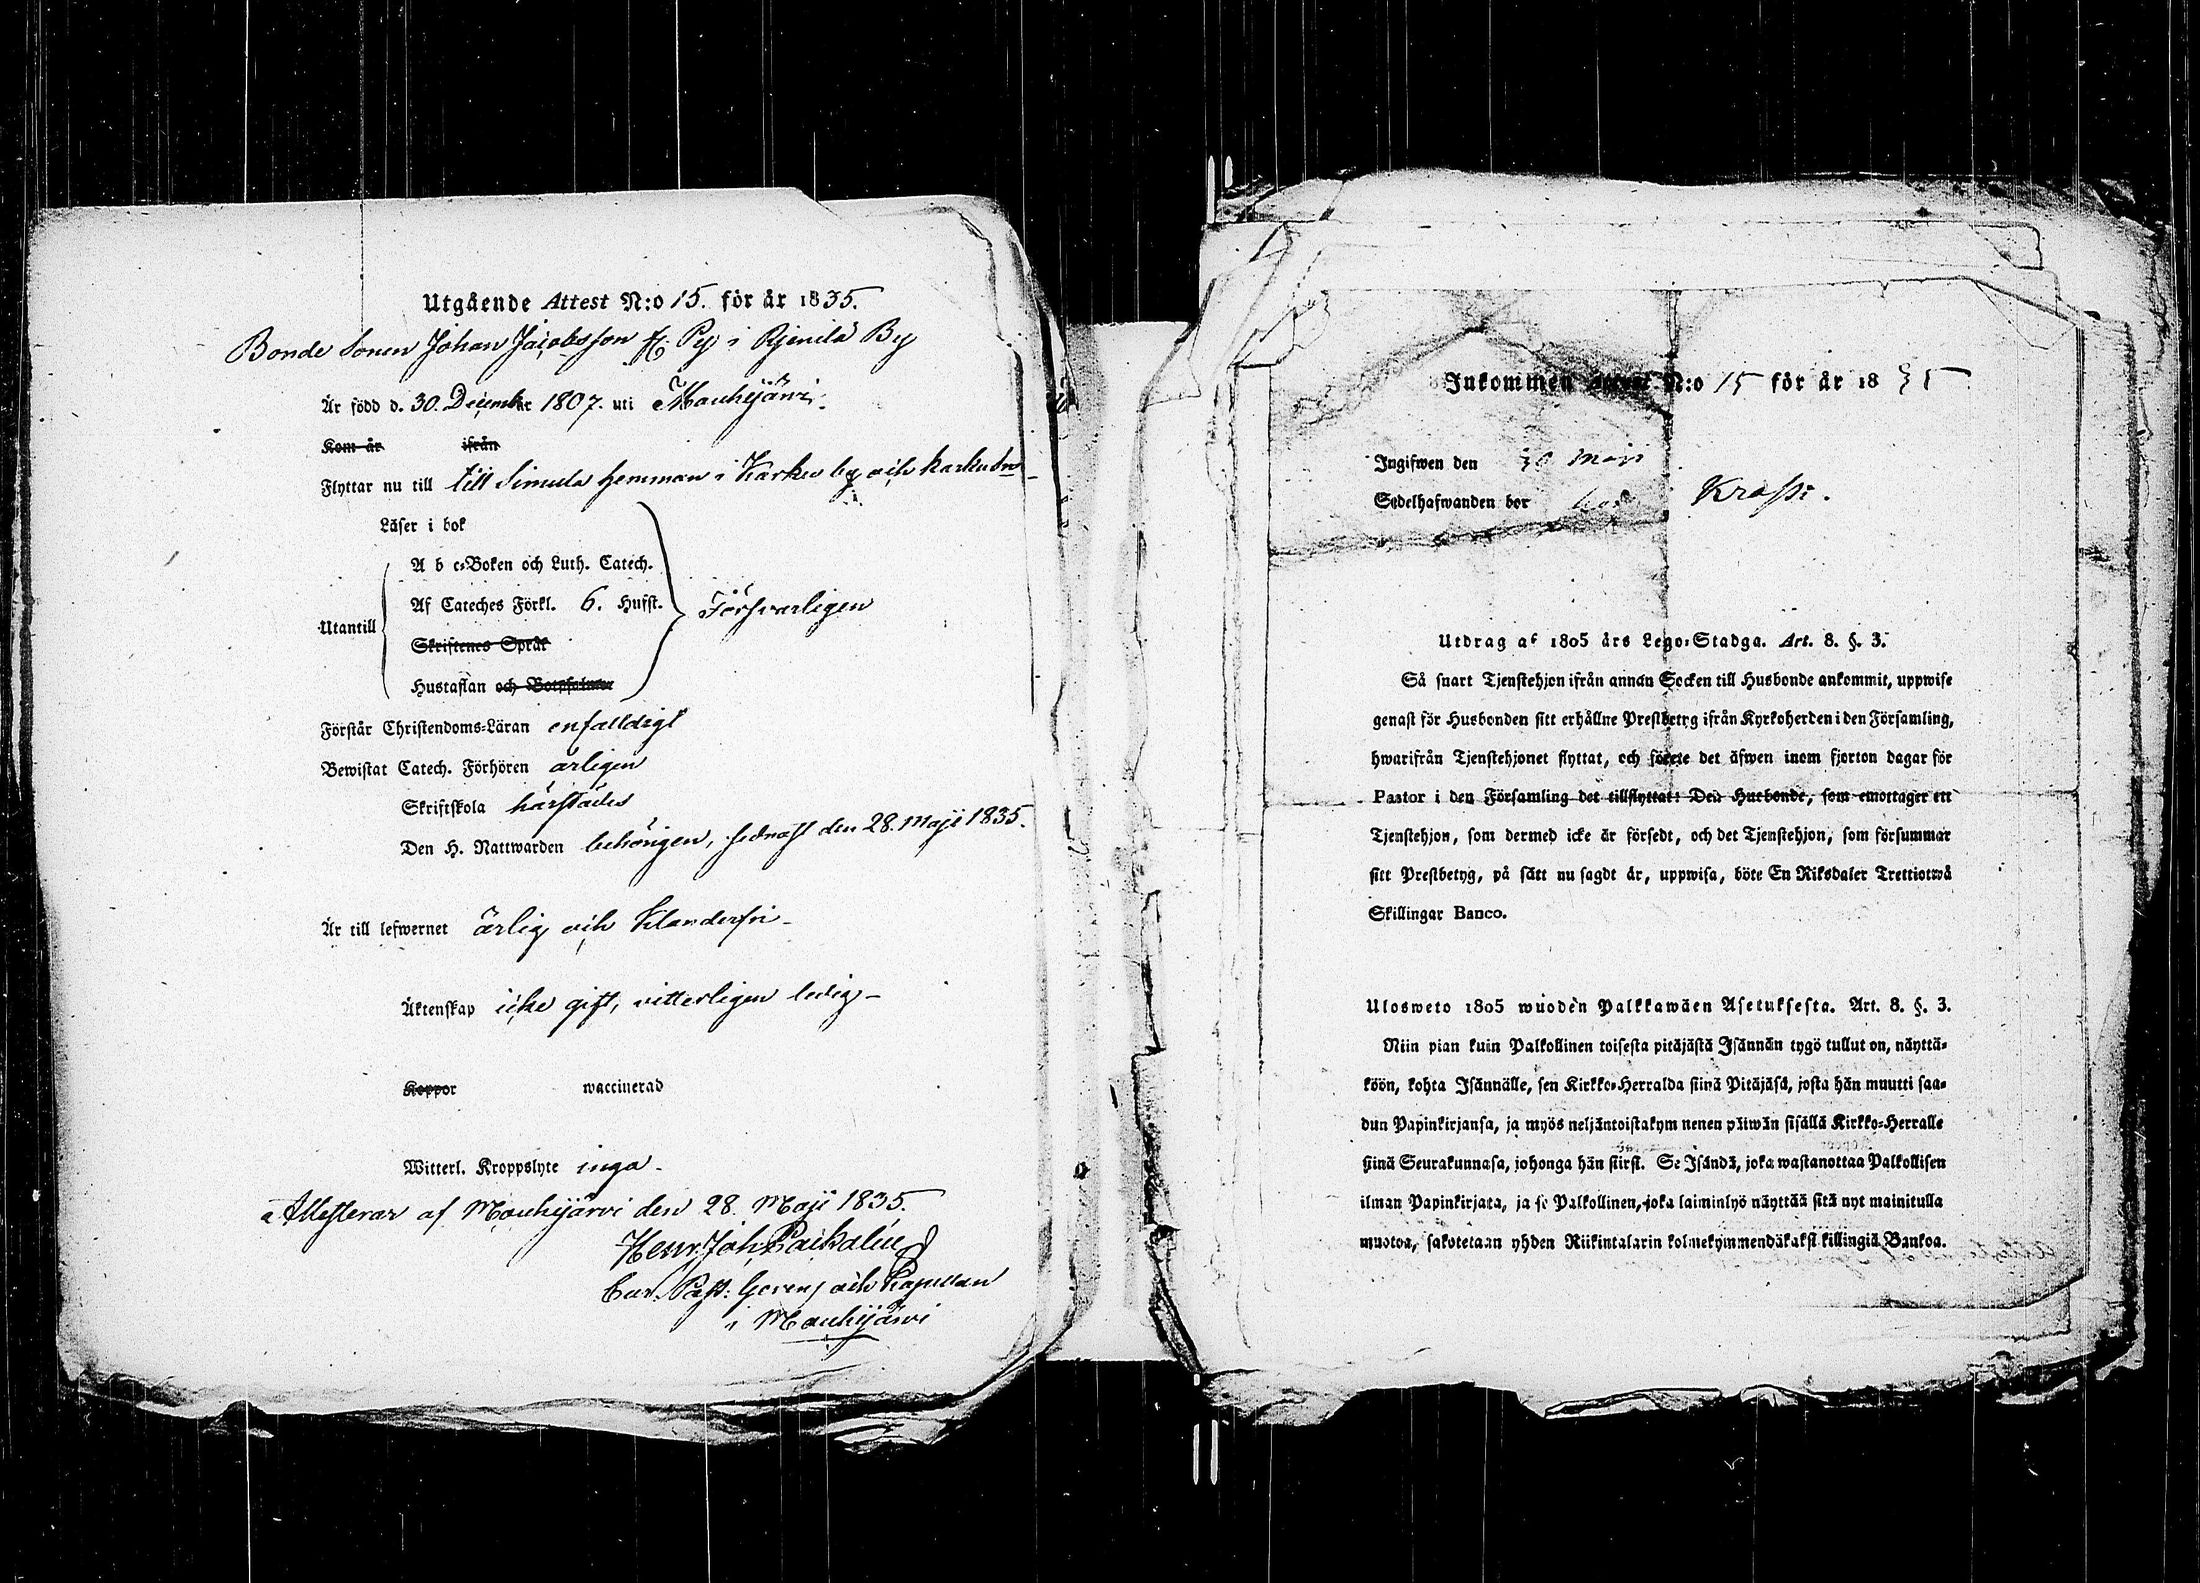 Utgående Attest N:o 15. för år 1835.
Bonde Sonen Johan Jacobsson fr. Pey i Kjenilä By
Är född d. 30. December 1807. uti Mouhijärvi.
Kom år ifrån
Flyttar nu till till Simula hemman i Karku by och Karku Sn
Läser i bok
A b c-Boken och Luth. Catech.
Af Cateches Förkl. 6. Hufst. Försvarligen
Utantill
Skriftenes Språk
Hustaflan och Botpsalmer
Förstår Christendoms-Läran enfalldigt
Bewistat Catech. Förhören årligen
Skriftskola härstädes
Den H. Nattwarden behörigen, sednast den 28. Maji 1835.
Är till lefwernet ärlig och klanderfri
Äktenskap icke gift, vitterligen ledig
Koppor waccinerad
Witterl. Kroppslyte inga
Attesterar af Mouhijärvi den 28. Maji 1835.
Henr. Joh.
Cur. Past: Gerens och Kapellan
i Mouhijärvi
Inkommen Attest N:o 15 för år 1835
Ingifwen den 30 Maji
Sedelhafwanden bor Krassi.
Utdrag af 1805 års Lego-Stadga. Art. 8. §. 3.
Så snart Tjenstehjon ifrån annan Socken till Husbonde ankommit, uppwise
genast för Husbonden sitt erhållne Prestbetyg ifrån Kyrkoherden i den Församling,
hwarifrån Tjenstehjonet flyttat, och förete det äfwen inom fjorton dagar för
Pastor i den Församling det tillflyttat: Den Husbonde, som emottager ett
Tjenstehjon, som dermed icke är försedt, och det Tjenstehjon, som försummar
sitt Prestbetyg, på sätt nu sagdt är, uppwisa, böte En Riksdaler Trettiotwå
Skillingar Banco.
Ulosweto 1805 wuoden Palkkawäen Asetuksesta. Art. 8. §. 3.
Niin pian kuin Palkollinen toisesta pitäjästä Isännän tygö tullut on, näyttä-
köön, kohta Isännälle, sen Kirkko-Herralda siinä Pitäjäsä, josta hän muutti saa-
dun Papinkirjansa, ja myös neljäntoistakymmenen päiwän sisällä Kirkko-Herralle
siinä Seurakunnasa, johonga hän siirst. Se Isändä, joka wastanottaa Palkollisen
ilman Papinkirjata, ja se Palkollinen, joka laiminlyö näyttää sitä nyt mainitulla
muotoa, sakotetaan yhden Riikintalarin kolmekymmendäkaksi killingiä Bankoa.